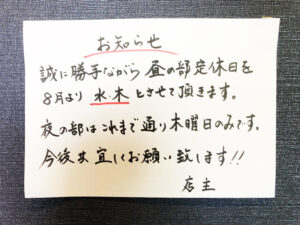 お知らせ
誠に勝手ながら昼の部定休日を
8月より 水・木 とさせて頂きます。
夜の部はこれまで通り木曜日のみです。
今後共宜しくお願い致します!!
店主